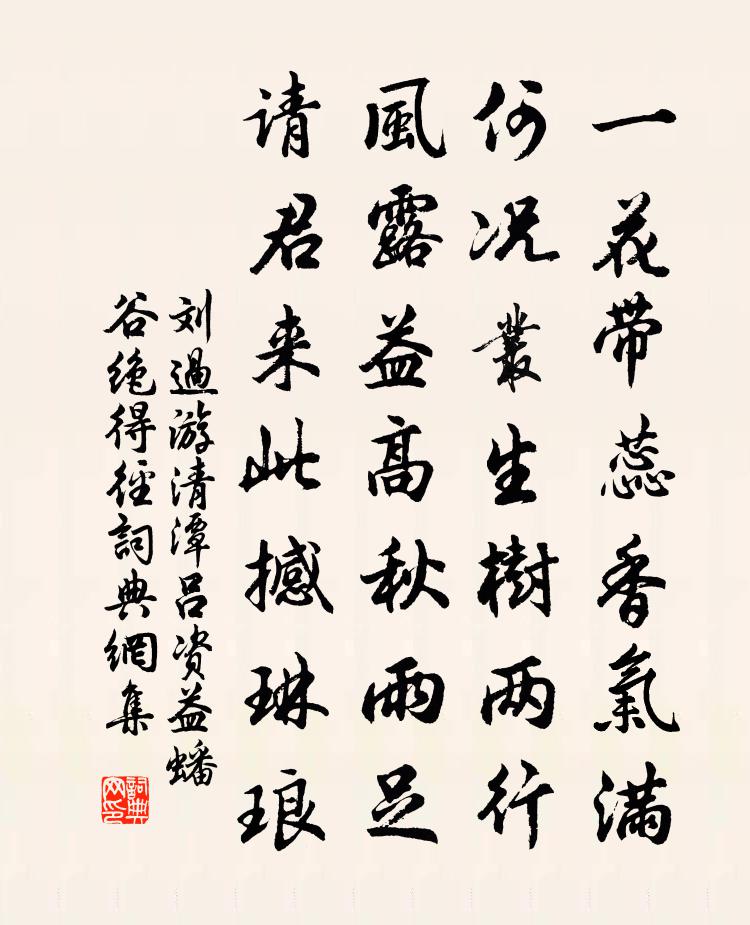 一花带蕊香氣满
何况叢生樹两行
風露益高秋雨足
请君来此撼琳琅
刘過游清潭吕资益蟠
谷绝得徑詞典網集
詞典网印